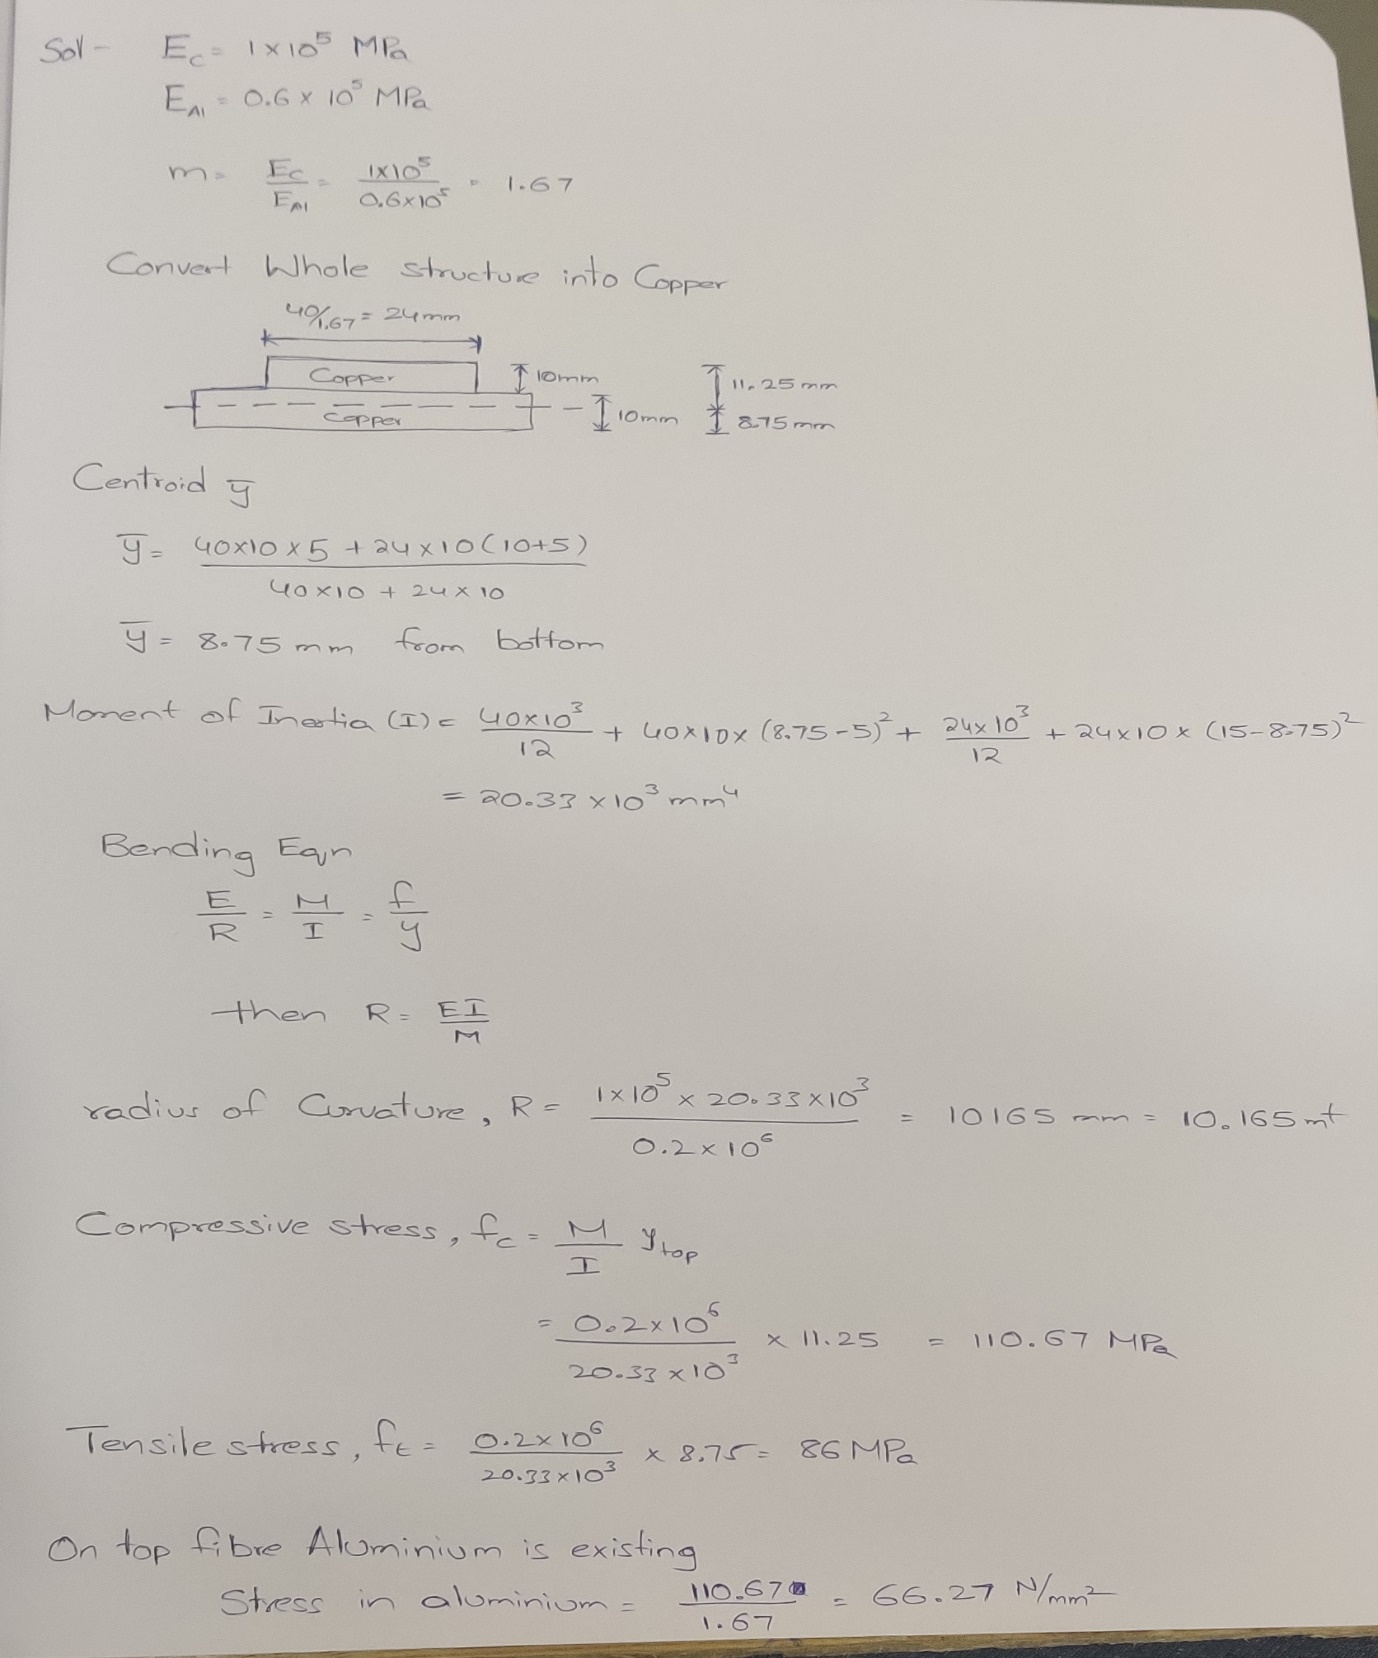 Sol - E_C = 1×10^5 MPa
E_Al = 0.6×10^5 MPa
m = E_C/E_Al = 1×10^5/0.6×10^5 = 1.67
Convert Whole structure into Copper
40/1.67 = 24mm
Copper 10mm 11.25mm
Copper 10mm 8.75mm
Centroid ȳ
ȳ = 40×10×5 + 24×10(10+5) / 40×10 + 24×10
ȳ = 8.75mm from bottom
Moment of Inertia (I) = 40×10^3/12 + 40×10×(8.75-5)^2 + 24×10^3/12 + 24×10×(15-8.75)^2
= 20.33×10^3 mm^4
Bending Eqn
E/R = M/I = f/y
then R = EI/M
radius of Curvature, R = 1×10^5×20.33×10^3/0.2×10^6 = 10165 mm = 10.165mt
Compressive stress, f_c = M/I y_top
= 0.2×10^6/20.33×10^3 × 11.25 = 110.67 MPa
Tensile stress, f_t = 0.2×10^6/20.33×10^3 × 8.75 = 86 MPa
On top fibre Aluminium is existing
Stress in aluminium = 110.67/1.67 = 66.27 N/mm^2